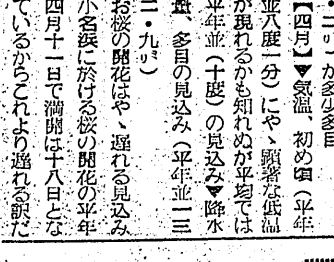 ・二㍉）が多少多目
【四月】▼気温、初め頃（平年
並八度一分）にやゝ顕著な低温
が現れるかも知れぬが平均では
平年並（十度）の見込み▼降水
量、多目の見込み（平年並一三
二・九㍉）
お桜の開花はやゝ遅れる見込み
小名浜に於ける桜の開花の平年
四月十一日で満開は十八日とな
ているからこれより遅れる訳だ